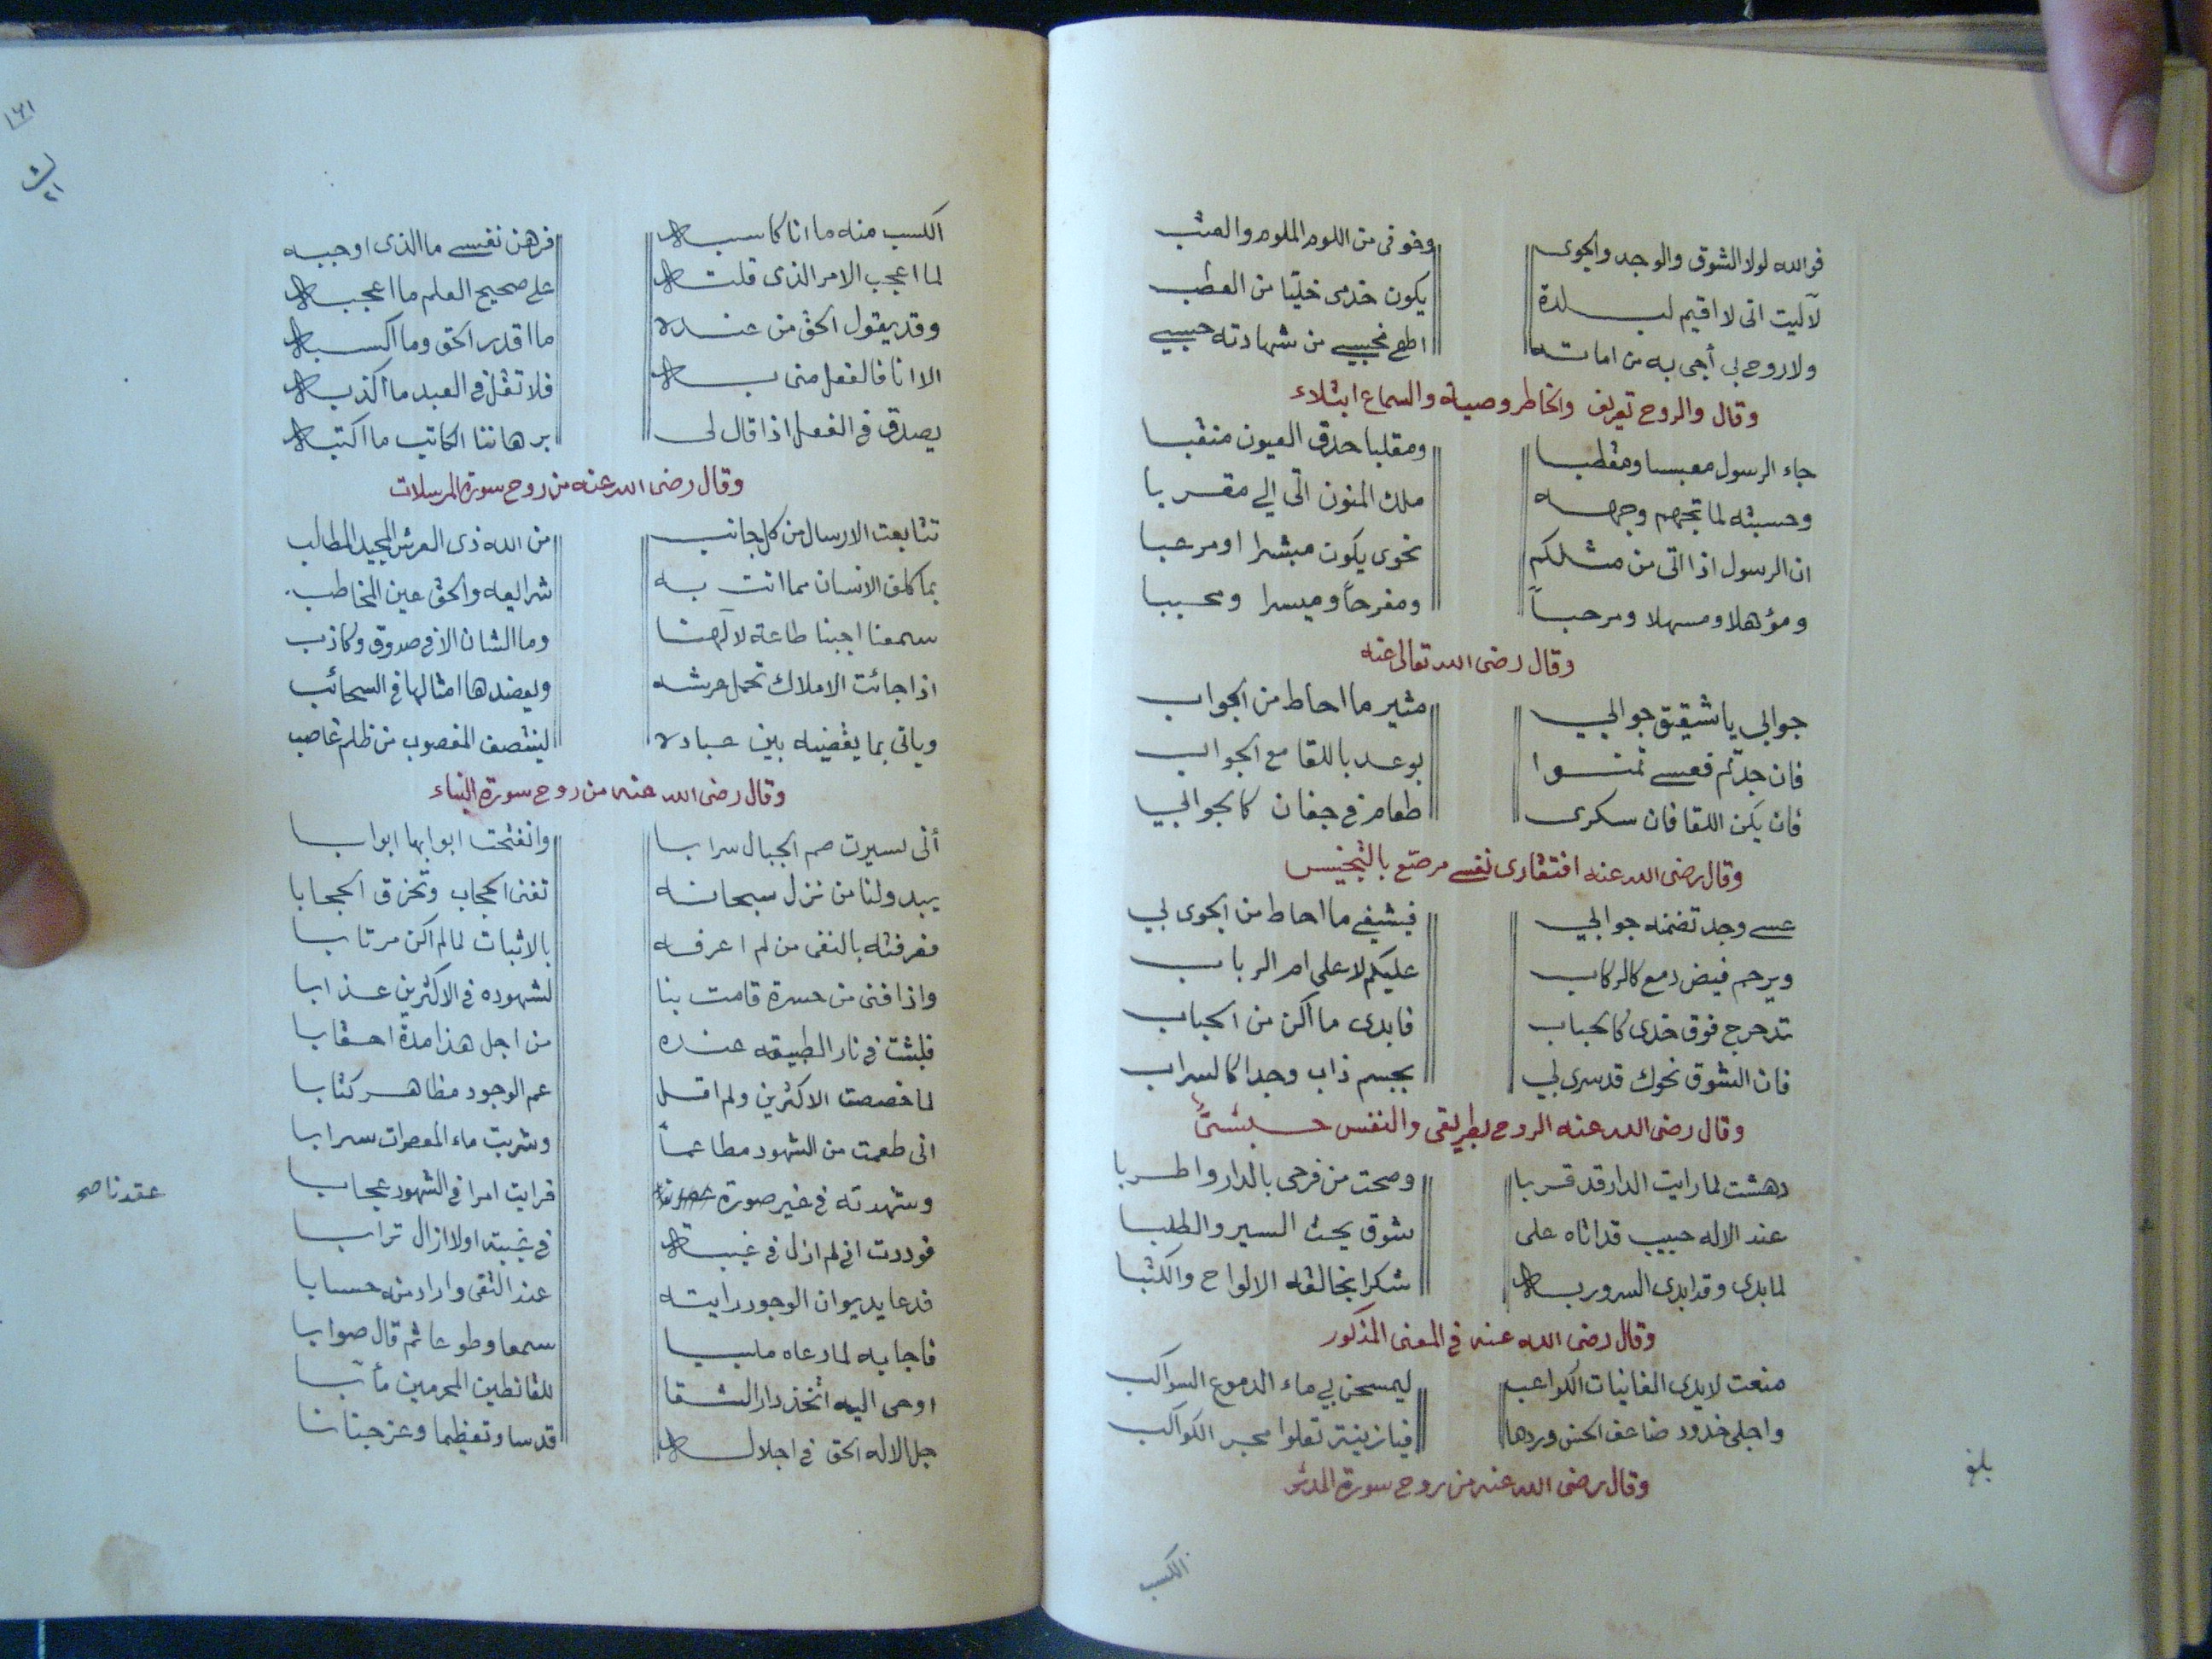 فوالله لولا الشوق والوجد والجوى وخوفى من اللوم الملوم والعتب
لآليت انى لا اقيم لبلدة يكون خدمى خليا من العطب
ولا روح بى أجى به من اماته اطع نحبيبى من شهادته حبيبي
وقال والروح تعريف والخاطر وصية والسماع ابتلاء
جاء الرسول معبسا ومقطبا ومقلبا حدق العيون منقبا
وحسبته لما تجهم وجهه ملك المنون اتى الي مقربا
ان الرسول اذا اتى من مثلكم نحوى يكون مبشرا او مرعبا
ومؤهلا ومسهلا ومرحباً ومفرحاً وميسرا ومحببا
وقال رضى الله تعالى عنه
جوابي يا شقيق جوابي مثير ما احاط من الجواب
فان جدتم فعسى تمنوا بوعد باللقا مع الجواب
فان يكن اللقا فان سكرى طعام فى جفان كالجوابي
وقال رضى الله عنه افتقارى نفسى مرصع بالتجنيس
عسى وجد تضمنه جوابي فيشفى ما احاط من الجوى بي
ويرحم فيض دمع كالركاب عليكم لا على ام الرباب
تدحرج فوق خدى كالحباب فابدى ما اكن من الحباب
فان الشوق نحوك قد سرى بي بجسم ذاب وجدا كالسراب
وقال رضى الله عنه الروح بطريقى والنفس حبشتىً
دهشت لما رايت الدار قد قربا وصحت من فرحى بالدار واطربا
عند الاله حبيب قد اتاه على شوق يحث السير والطلبا
لما بدى وقد ابدى السرور به شكرا لخالقه الالواح والكتبا
وقال رضى الله عنه فى المعنى المذكور
منعت لايدى الغانيات الكواعب ليمسحن بي ماء الدموع السواكب
واجلى خدود ضاعف الحسن وردها فيا زينة تعلوا محبر الكواكب
وقال رضى الله عنه من روح سورة المدثر
بلغ
اكسب
١٦١
اكسب منه ما انا كاسبه فرهن نفسى ما الذى اوجبه
لما اعجب الامر الذى قلته على صحيح العلم ما اعجبه
وقد يقول الحق من عنده ما اقدر الحق وما اكسبه
الا انا فالفعل منى به فلا تقل فى العبد ما اكذبه
يصدق فى الفعل اذا قال لى برهاننا الكاتب ما اكتبه
وقال رضى الله عنه من روح سورة المرسلات
تتابعت الارسال من كل جانب من الله ذى العرش المجيد المطالب
بما كلف الانسان مما اتت به شرايعه والحق عين المخاطب
سمعنا اجبنا طاعة لالهنا وما الشان الا فى صدوق وكاذب
اذا جائت الاملاك تحمل عرشه ويعضدها امثالها فى السحائب
وياتى بما يقضيه بين عباده لينتصف المغصوب من ظلم غاصب
وقال رضى الله عنه من روح سورة النباء
أنى لسيرت صم الجبال سرابا وانفتحت ابوابها ابوابا
يبدو لنا من نزل سبحانه تفنى الحجاب وتخرق الحجابا
فعرفته بالنفى من لم اعرفه بالاثبات لما لم اكن مرتابا
واذا فنى من حسرة قامت بنا لشهوده فى الاكثرين عذابا
فلبثت فى نار الطبيعه عنده من اجل هذا مدة احقابا
لما خصصت الاكثرين ولم اقل عم الوجود مظاهر كتابا
انى طعمت من الشهود مطاعماً وشربت ماء المعصرات سرابا
وشهدته فى غير صورة فرايت امرا فى الشهود عجابا
عقدنا صح
فوددت انى لم ازل فى غيبه فى غيبته اولا ازال ترابا
فدعا بديوان الوجود رايته عند التقى واراد منه حسابا
فاجابه لما دعاه ملبيا سمعا وطوعا ثم قال صوابا
اوحى اليه اتخذ دار الشقا للقانطين المجرمين مأبا
جل الاله الحق فى اجلاله قدسا وتعظيما وعز جنابا